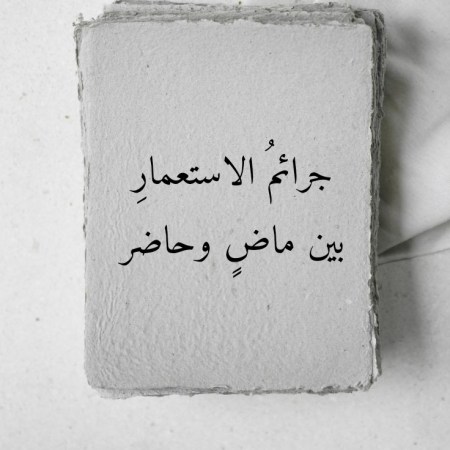 جرائمُ الاستعمارِ
بين ماضٍ وحاضر